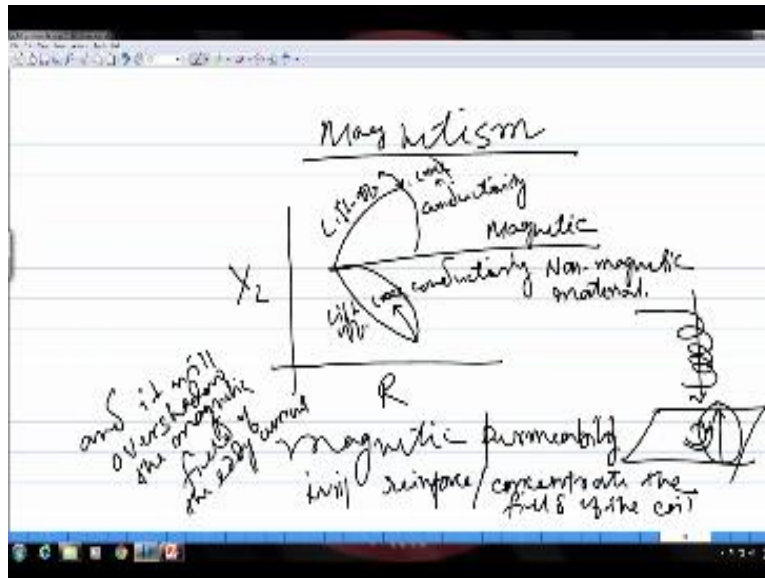 Magnetism
Lift-off
conductivity
Magnetic
XL
conductivity Non-magnetic
material.
Lift
off
R
and it will
overshadow
the magnetic
fields of
the eddy current
magnetic permeability
will reinforce/concentrate the
field of the coil